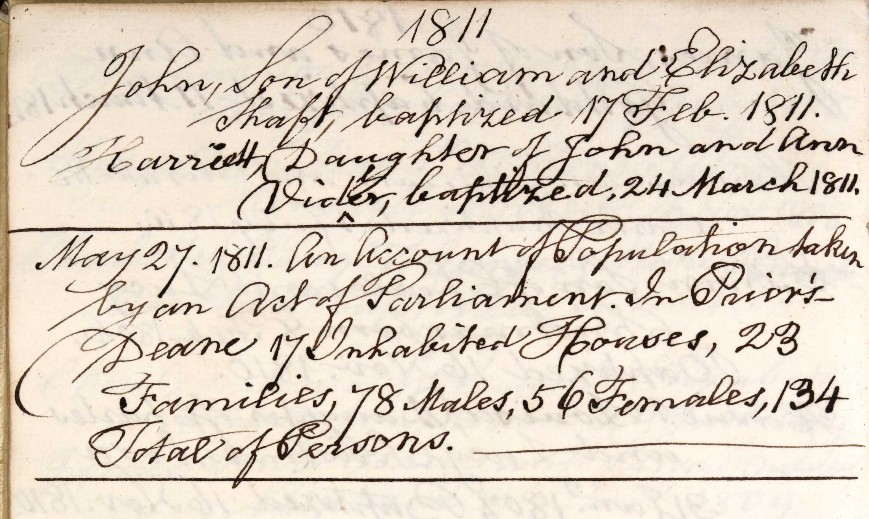 1811
John, Son of William and Elizabeth
Shaft, baptized 17 Feb. 1811.
Harriett, Daughter of John and Ann
baptized, 24 March 1811.
May 27. 1811. An Account of Population taken
by an Act of Parliament. In Prior's
Deane 17 Inhabited Houses, 23
Families, 78 Males, 56 Females, 134
Total of Persons.